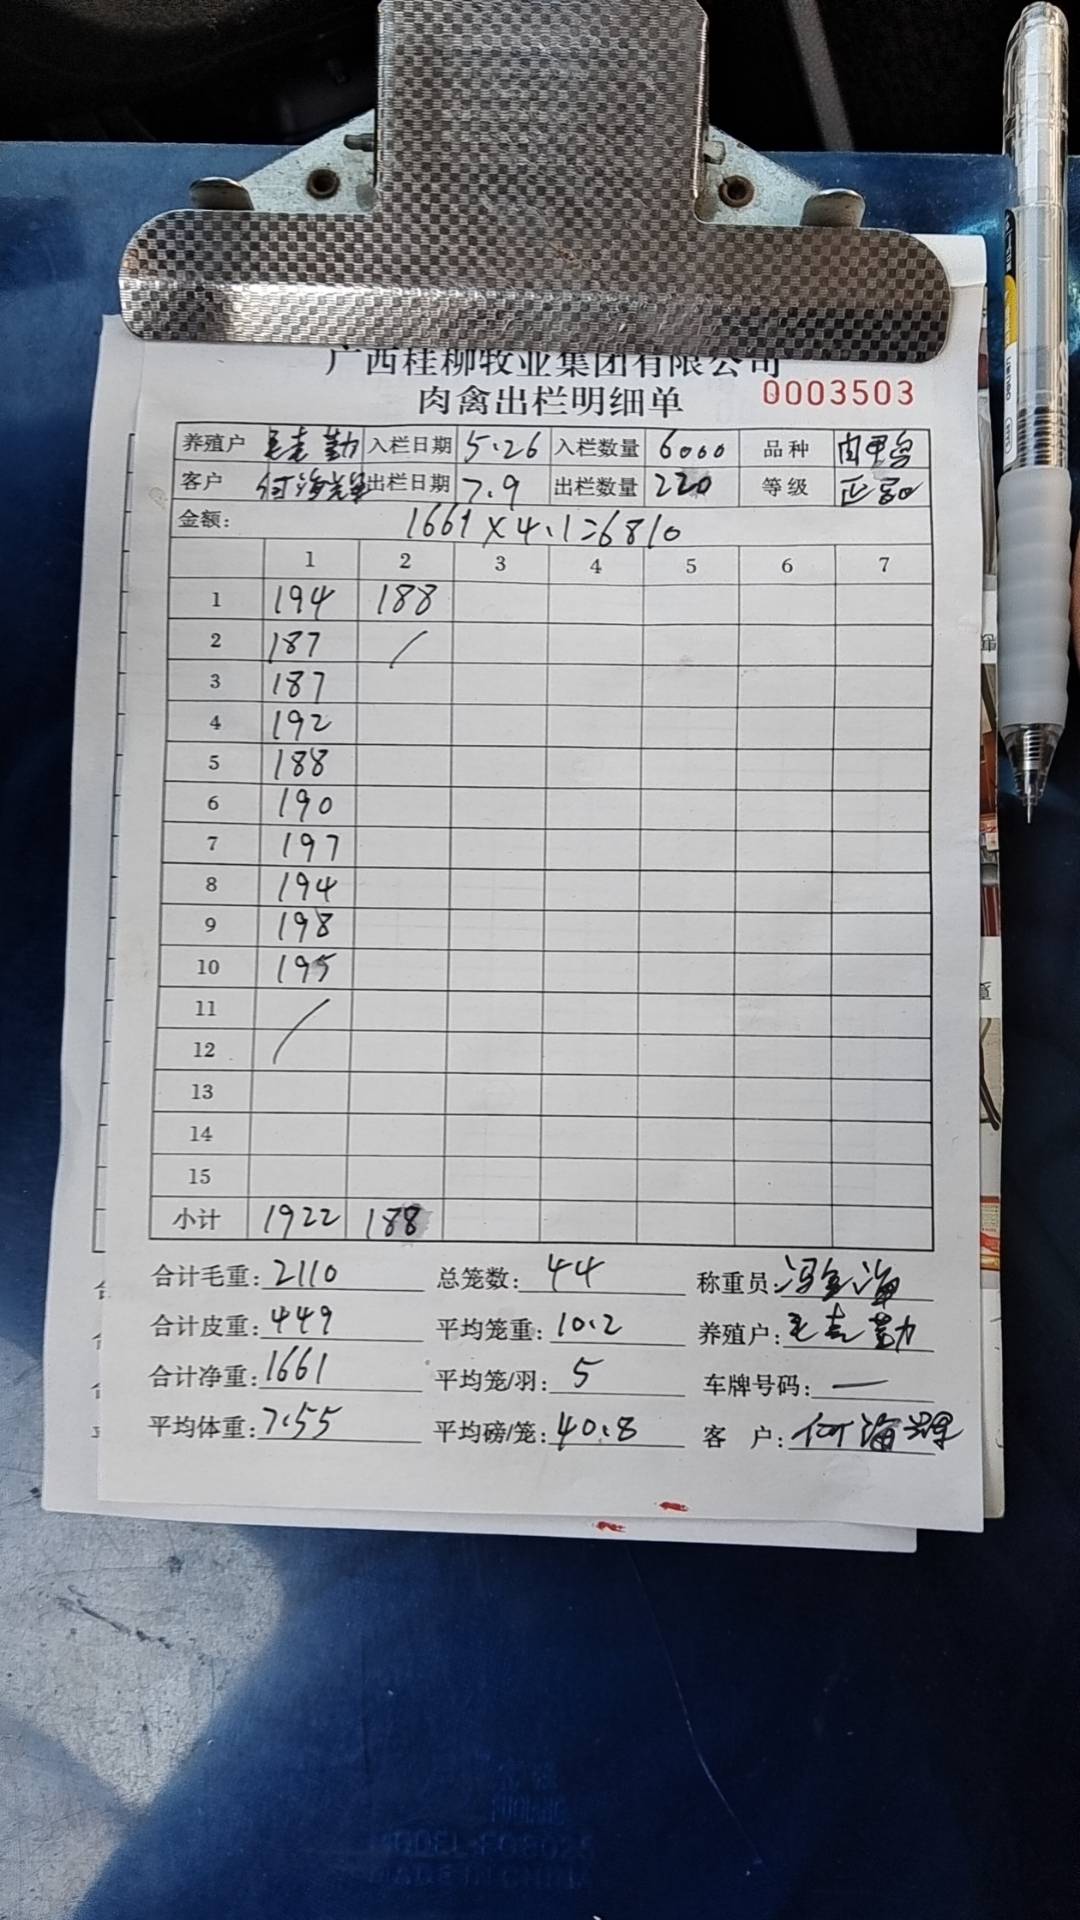 广西桂柳牧业集团有限公司
肉禽出栏明细单 0003503
养殖户 毛志勤 入栏日期 5.26 入栏数量 6000 品种 肉甲鸟
客户 何海辉 出栏日期 7.9 出栏数量 220 等级 正品
金额: 1661×4.1=6810
1 2 3 4 5 6 7
1 194 188
2 187 /
3 187
4 192
5 188
6 190
7 197
8 194
9 198
10 195
11 /
12
13
14
15
小计 1922 188
合计毛重: 2110 总笼数: 44 称重员: 冯金海
合计皮重: 449 平均笼重: 10.2 养殖户: 毛志勤
合计净重: 1661 平均笼/羽: 5 车牌号码: —
平均体重: 7.55 平均磅/笼: 40.8 客 户: 何海辉
MADE IN CHINA